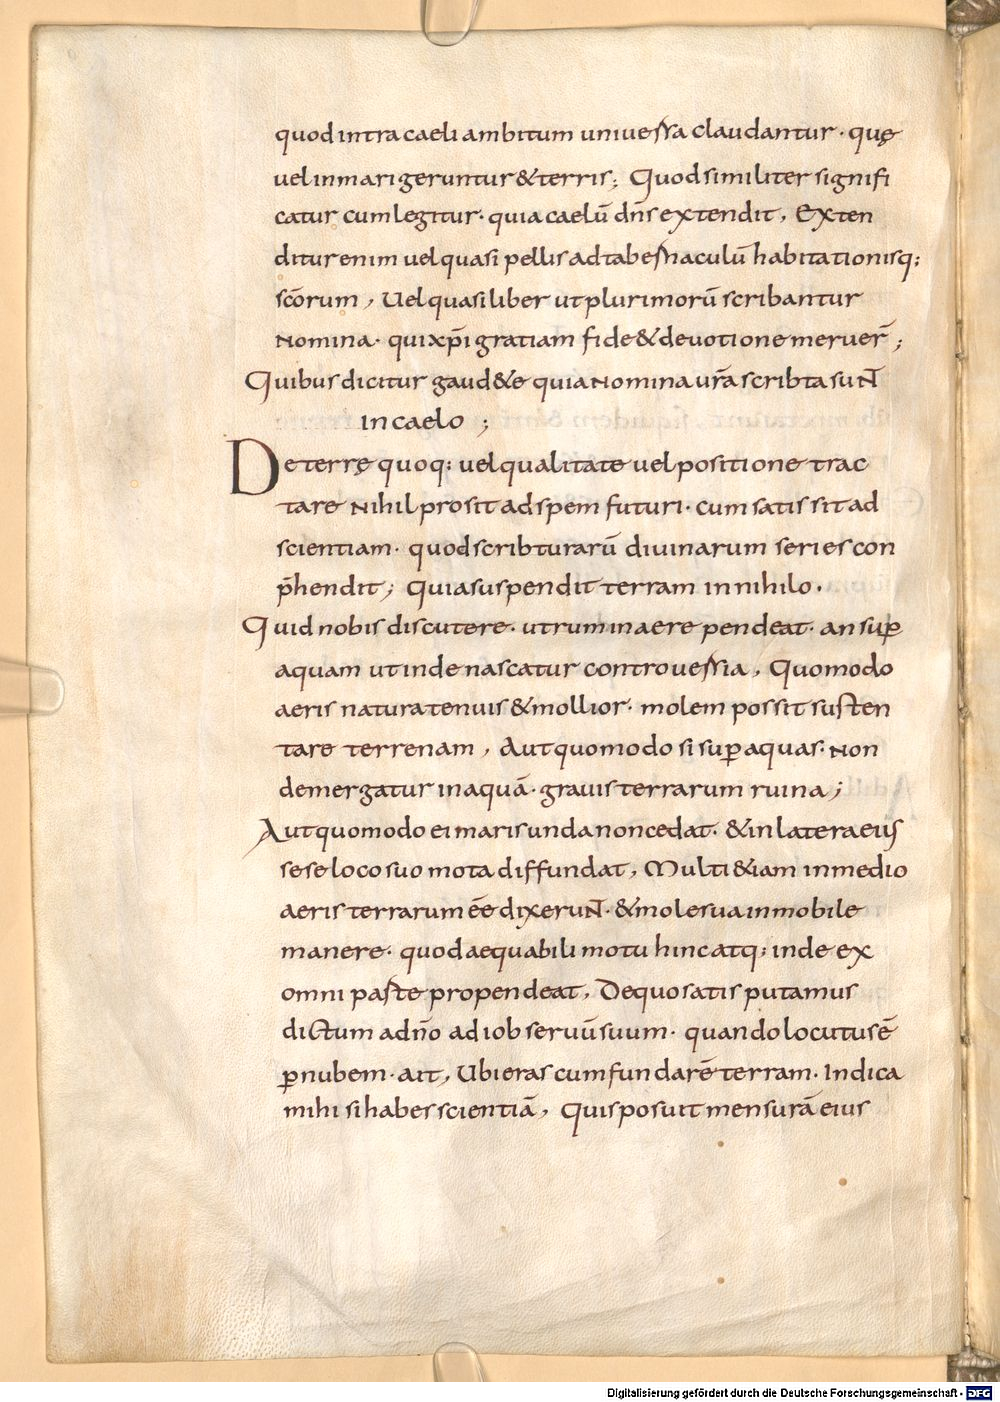 quod intra caeli ambitum universa claudantur · quę
vel in mari geruntur & terris; Quod similiter signifi
catur cum legitur · quia caelū dn̄s extendit, Exten
ditur enim uel quasi pellis ad tabernaculū habitationisq;
sc̄orum, Uel quasi liber ut plurimorū scribantur
Nomina · qui xp̄i gratiam fide & devotione meruer̄;
Quibus dicitur gaud&e quia nomina ur̄a scribta suN̄
in caelo;
De terrę quoq; uel qualitate uel positione trac
tare nihil prosit ad spem futuri · cum satis sit ad
scientiam · quod scribturarū divinarum series con
p̄hendit; Quia suspendit terram in nihilo ·
Quid nobis discutere · utrum in aere pendeat · an sup̱
aquam ut inde nascatur controversia, Quomodo
aeris natura tenuis & mollior · molem possit susten
tare terrenam, Aut quomodo si sup̱ aquas · non
demergatur in aquā · gravis terrarum ruina;
Aut quomodo ei maris unda non cedat · & in latera eius
sese loco suo mota diffundat, Multi &iam in medio
aeris terrarum ēe dixeruN̄ · & mole sua inmobile
manere · quod aequabili motu hinc atq; inde ex
omni parte propendeat, De quo satis putamus
dictum a dn̄o ad iob servū suum · quando locutus ē
p̱ nubem · ait, Ubi eras cum fundarē terram · Indica
mihi si habes scientiā, Quis posuit mensurā eius
Digitalisierung gefördert durch die Deutsche Forschungsgemeinschaft - DFG